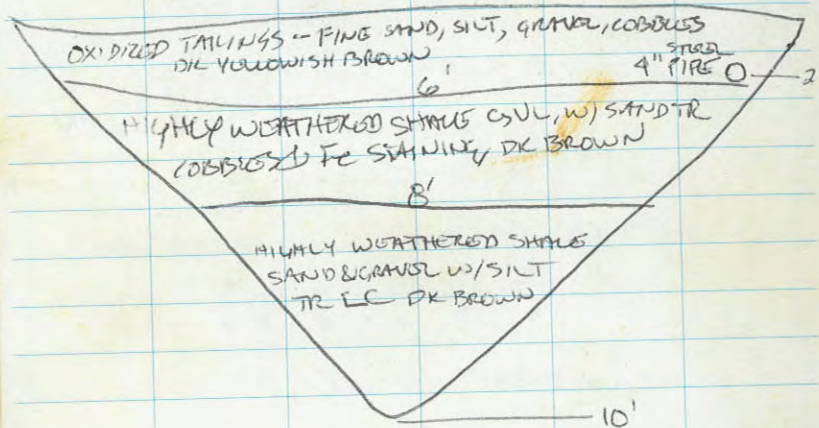 OXIDIZED TAILINGS -- FINE SAND, SILT, GRAVEL, COBBLES
DK YELLOWISH BROWN
4" STEEL PIPE
2
6'
HIGHLY WEATHERED SHALE GVL, W/ SAND TR
COBBLES Fe STAINING, DK BROWN
8'
HIGHLY WEATHERED SHALE
SAND & GRAVEL W/ SILT
TR DK BROWN
10'